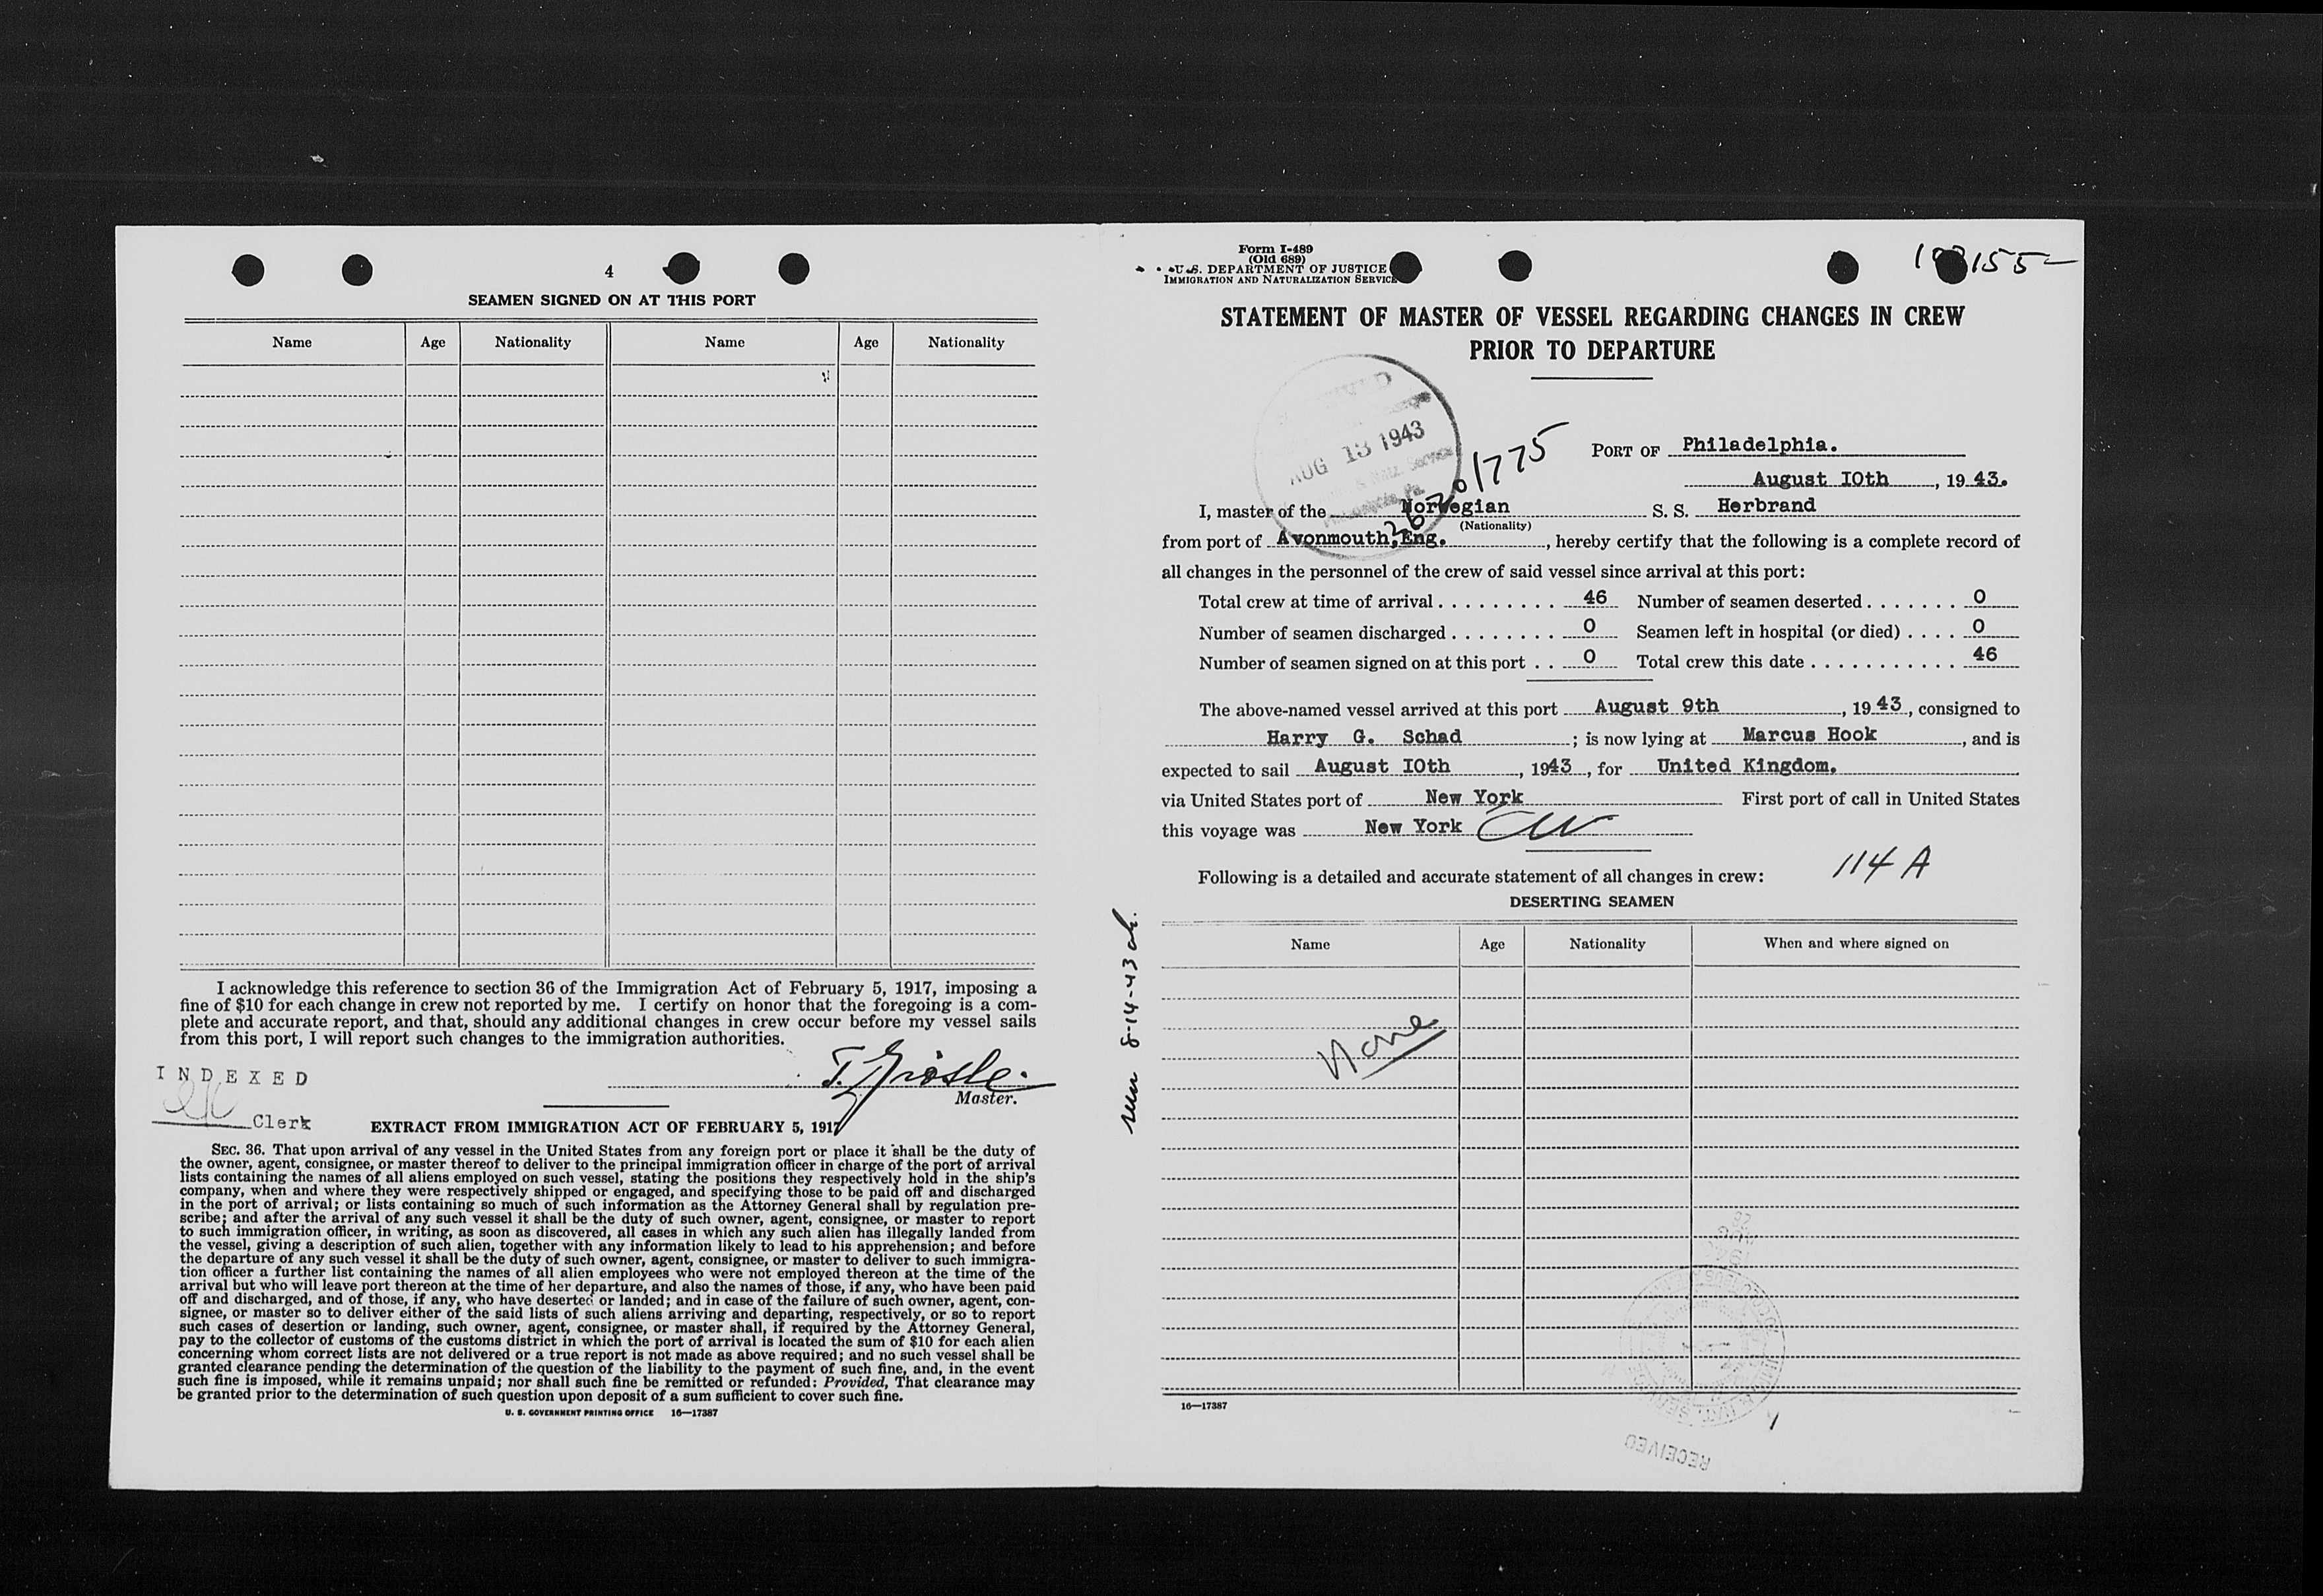 4
SEAMEN SIGNED ON AT THIS PORT
Name Age Nationality Name Age Nationality
I acknowledge this reference to section 36 of the Immigration Act of February 5, 1917, imposing a
fine of $10 for each change in crew not reported by me. I certify on honor that the foregoing is a com-
plete and accurate report, and that, should any additional changes in crew occur before my vessel sails
from this port, I will report such changes to the immigration authorities.
INDEXED
Master.
Clerk
EXTRACT FROM IMMIGRATION ACT OF FEBRUARY 5, 1917
SEC. 36. That upon arrival of any vessel in the United States from any foreign port or place it shall be the duty of
the owner, agent, consignee, or master thereof to deliver to the principal immigration officer in charge of the port of arrival
lists containing the names of all aliens employed on such vessel, stating the positions they respectively hold in the ship's
company, when and where they were respectively shipped or engaged, and specifying those to be paid off and discharged
in the port of arrival; or lists containing so much of such information as the Attorney General shall by regulation pre-
scribe; and after the arrival of any such vessel it shall be the duty of such owner, agent, consignee, or master to report
to such immigration officer, in writing, as soon as discovered, all cases in which any such alien has illegally landed from
the vessel, giving a description of such alien, together with any information likely to lead to his apprehension; and before
the departure of any such vessel it shall be the duty of such owner, agent, consignee, or master to deliver to such immigra-
tion officer a further list containing the names of all alien employees who were not employed thereon at the time of the
arrival but who will leave port thereon at the time of her departure, and also the names of those, if any, who have been paid
off and discharged, and of those, if any, who have deserted or landed; and in case of the failure of such owner, agent, con-
signee, or master so to deliver either of the said lists of such aliens arriving and departing, respectively, or so to report
such cases of desertion or landing, such owner, agent, consignee, or master shall, if required by the Attorney General,
pay to the collector of customs of the customs district in which the port of arrival is located the sum of $10 for each alien
concerning whom correct lists are not delivered or a true report is not made as above required; and no such vessel shall be
granted clearance pending the determination of the question of the liability to the payment of such fine, and, in the event
such fine is imposed, while it remains unpaid; nor shall such fine be remitted or refunded: Provided, That clearance may
be granted prior to the determination of such question upon deposit of a sum sufficient to cover such fine.
U. S. GOVERNMENT PRINTING OFFICE 16—17387
Form I-489
(Old 689)
U.S. DEPARTMENT OF JUSTICE
IMMIGRATION AND NATURALIZATION SERVICE
STATEMENT OF MASTER OF VESSEL REGARDING CHANGES IN CREW
PRIOR TO DEPARTURE
AUG 13 1943
PORT OF Philadelphia.
August 10th, 1943.
I, master of the Norwegian S. S. Herbrand
(Nationality)
from port of Avonmouth, Eng., hereby certify that the following is a complete record of
all changes in the personnel of the crew of said vessel since arrival at this port:
Total crew at time of arrival 46 Number of seamen deserted 0
Number of seamen discharged 0 Seamen left in hospital (or died) 0
Number of seamen signed on at this port 0 Total crew this date 46
The above-named vessel arrived at this port August 9th, 1943, consigned to
Harry G. Schad; is now lying at Marcus Hook, and is
expected to sail August 10th, 1943, for United Kingdom.
via United States port of New York First port of call in United States
this voyage was New York
114 A
Following is a detailed and accurate statement of all changes in crew:
DESERTING SEAMEN
Name Age Nationality When and where signed on
None
8-14-43
16—17387
RECEIVED